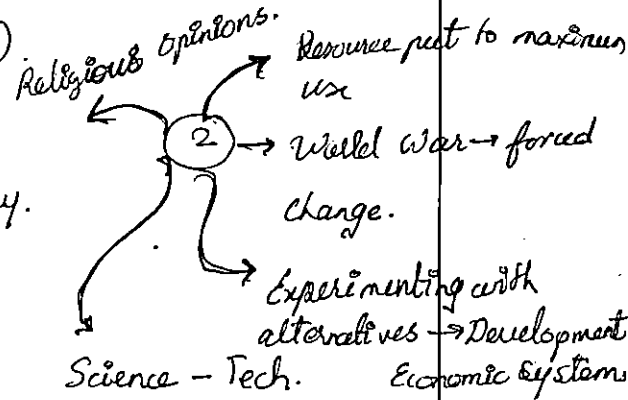 Religious Opinions.
Resource put to maximum
use
2
World War → forced
change.
4.
Experimenting with
alternatives → Development
Science - Tech.
Economic Systems